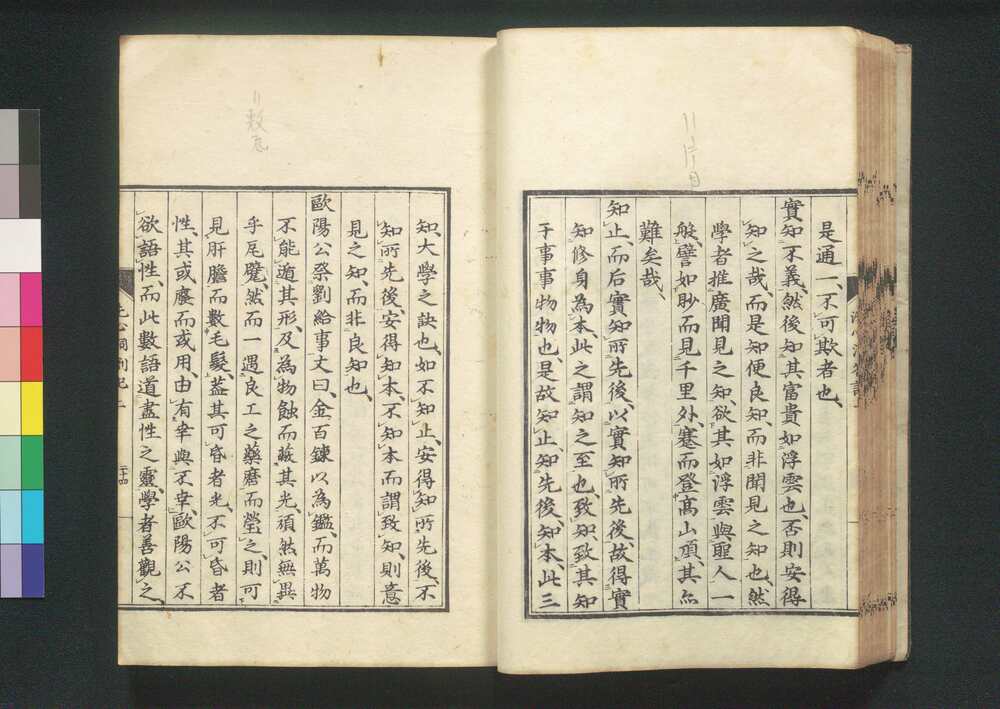 是通一、不可欺者也、
實知不義、然後知其富貴如浮雲也、否則安得
知之哉、而是知便良知、而非聞見之知也、然
學者推廣聞見之知、欲其如浮雲與聖人一
般、譬如眇而見千里外、蹇而登高山頂、其亦
難矣哉、
知止而后實知所先後、以實知所先後、故得實
知修身為本、此之謂知之至也、致知致其知
于事事物物也、是故知止、知先後、知本、此三
知、大學之訣也、如不知止、安得知所先後、不
知所先後、安得知本、不知本而謂致知、則意
見之知、而非良知也、
歐陽公祭劉給事文曰、金百鍊以為鑑、而萬物
不能遁其形、及為物蝕而蔽其光、頑然無異
乎瓦甓、然而一遇良工之藥磨而瑩之、則可
見肝膽而數毛髮、蓋其可昏者光、不可昏者
性、其或廢而或用、由有幸與不幸、歐陽公不
欲語性、而此數語道盡性之靈、學者善觀之、